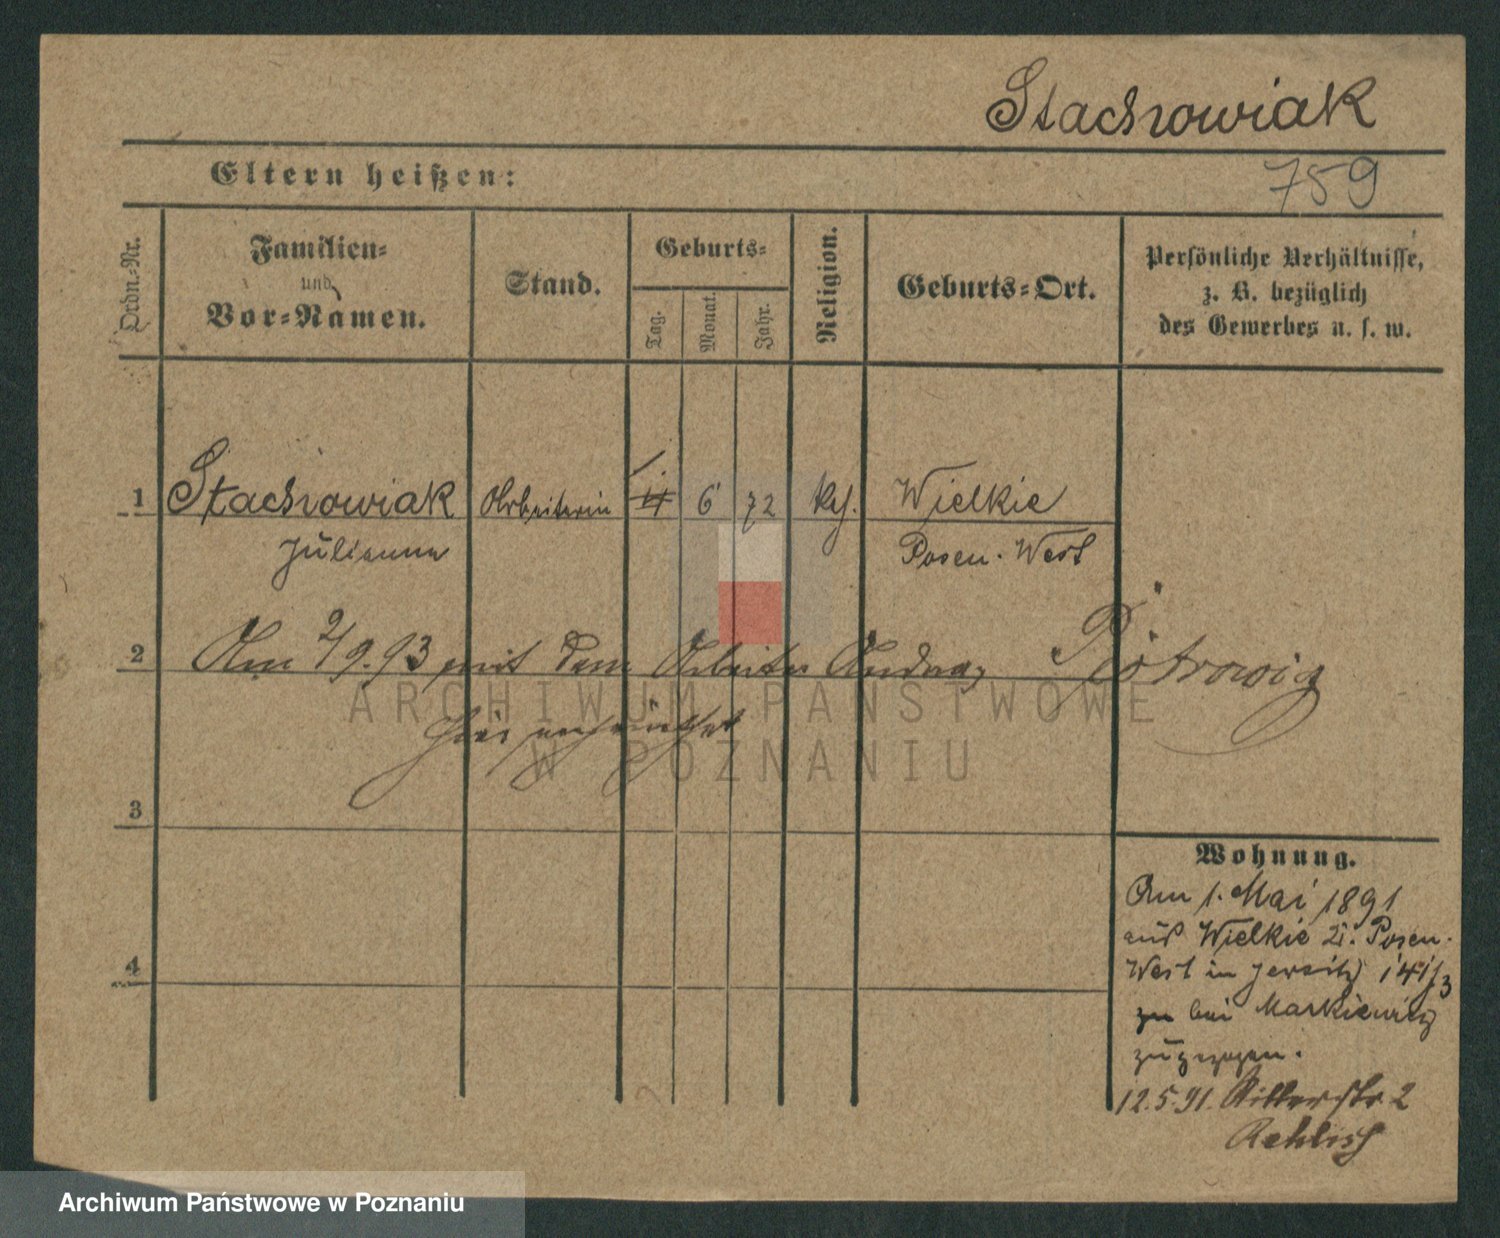 Stachowiak
759
Eltern heißen:
Ordn.-Nr.
Familien-
und
Vor-Namen.
Stand.
Geburts-
Tag.
Monat.
Jahr.
Religion.
Geburts-Ort.
Persönliche Verhältnisse,
z. B. bezüglich
des Gewerbes u. s. w.
1 Stachowiak Arbeiterin 6 72 kth. Wielkie
Julianna Posen-West
2 Am 2/9.93 mit dem Arbeiter Andreas Piotrowicz
hier verheirathet
ARCHIWUM PAŃSTWOWE
W POZNANIU
3
Wohnung.
Am 1. Mai 1891
aus Wielkie Posen-
West in Jersitz 141/3
zu bei Markiewicz
zugezogen.
4
12.5.91. Ritterstr 2
Rehlisch
Archiwum Państwowe w Poznaniu